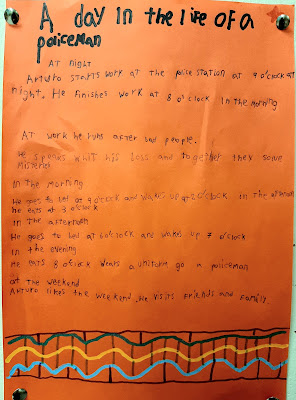 A day in the life of a
policeman
At night
Arturo starts work at the police station at 9 o'clock at
night. He finishes work at 8 o'clock in the morning
At work he runs after bad people.
He speaks whit his boss and together they solve
misteries
In the morning
He goes to bed at 9 o'clock and wakes up at 2 o'clock in the afternoon
he eats at 3 o'clock
In the afternoon
He goes to bed at 6 o'clock and wakes up 7 o'clock
In the evening
He eats 8 o'clock wears a uniform go a policeman
at the weekend
Arturo likes the weekend. He visits friends and family.